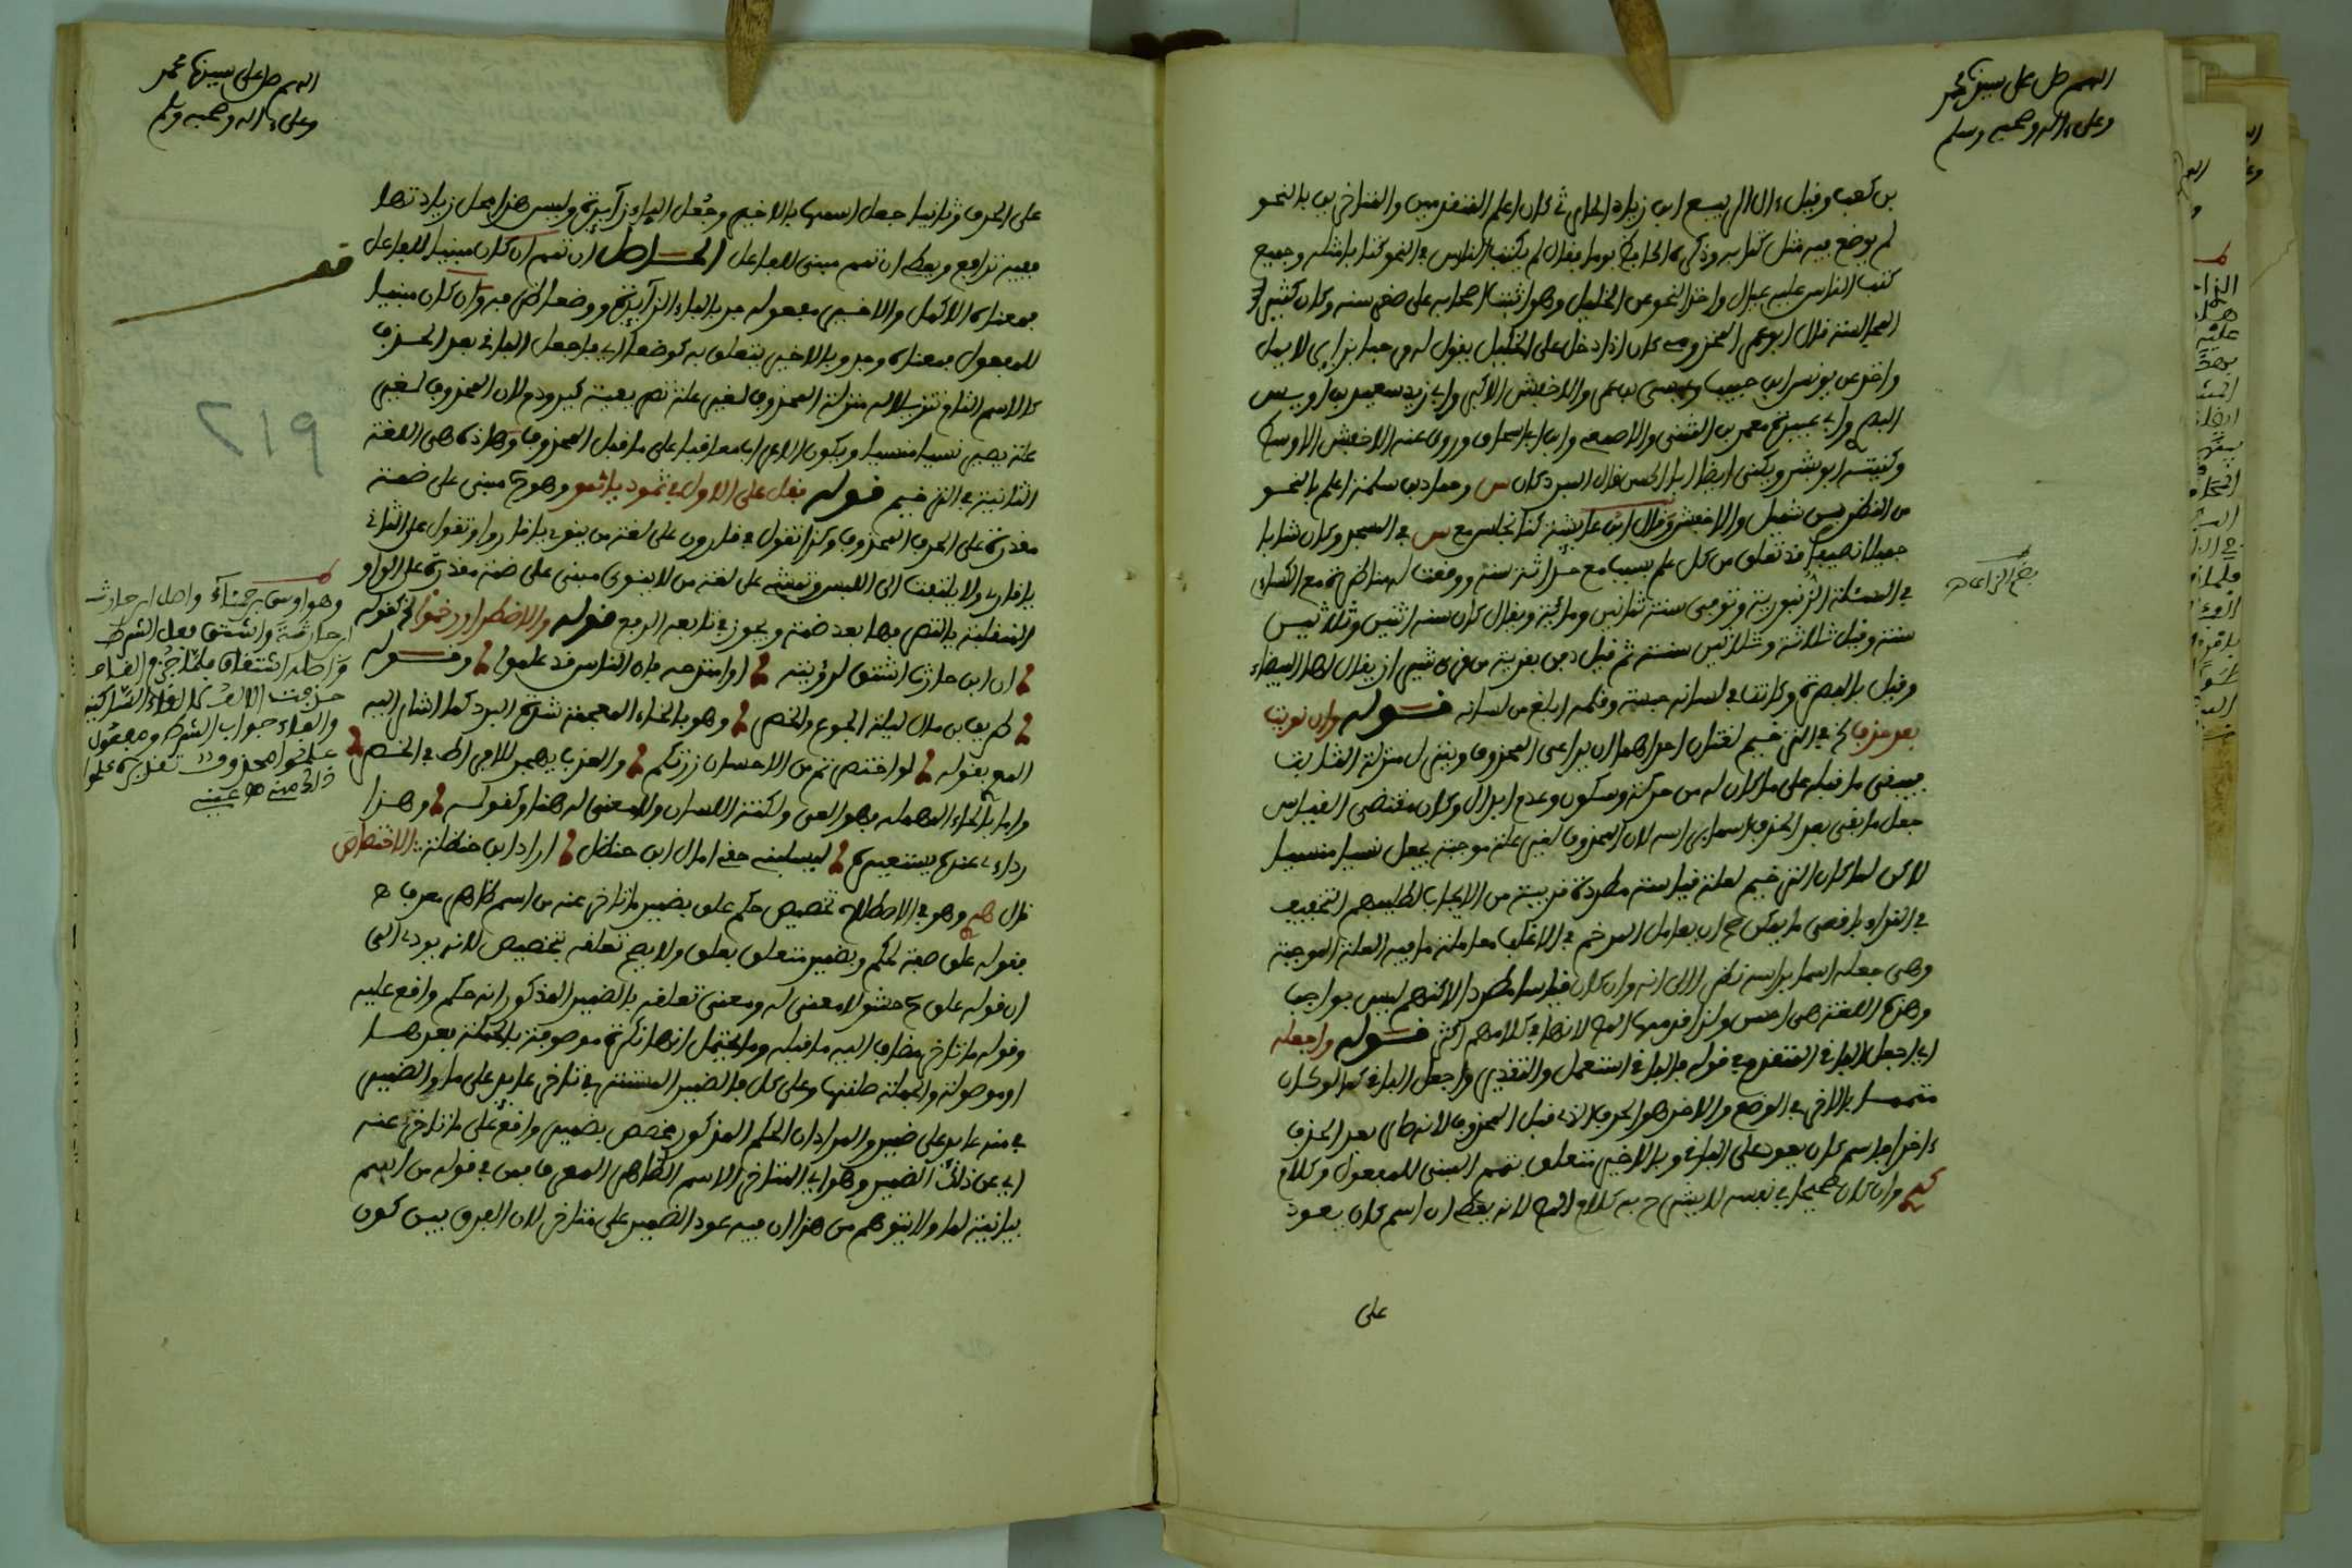 اللهم صل على سيدنا محمد
وعلى ءاله وصحبه وسلم
بن كعب وقيل ءال الربيع ابن زياد الحارثي كان اعلم المتقدمين والمتاخرين بالنحو
لم يوضع فيه مثل كتابه وذكره الجاحظ يوما فقال لم يكتب الناس في النحو كتابا مثله وجميع
كتب الناس عليه عيال واخذ النحو عن الخليل وهو اثبت اصحابه على صغر سنه وكان كثير
المجالسة قال ابو عمر المخزومي كان اذا دخل على الخليل يقول له مرحبا بزاير لا يمل
واخذ عن يونس ابن حبيب وعيسى بن عمر والاخفش الاكبر وابي زيد سعيد بن اويس
البصري وابي عبيدة معمر بن المثنى والاصمعي وابن ابي اسحاق وروى عنه الاخفش الاوسط
وكنيته ابو بشر ويكنى ايضا ابا الحسن قال المبرد كان س وحماد بن سلمة اعلم بالنحو
من النضر بن شميل والاخفش وقال ابن عايشة كنا نجلس مع س في المسجد وكان شابا
جميلا نظيفا قد تعلق من كل علم بسبب مع حداثة سنه ووقعت له مناظرة مع الكساءي
في المسئلة الزنبورية وتوفي سنة ثمانين ومائة ويقال كان سنه اثنين وثلاثين
سنة وقيل ثلاثة وثلاثين سنة ثم قيل دفن بقرية من قرى شيراز يقال لها البيضاء
وقيل بالبصرة وكانت في لسانه حبسة وقلمه ابلغ من لسانه قوله وان نويت
بعد حذف الخ في الترخيم لغتان احداهما ان يراعى المحذوف وينزل منزلة الثابت
فيبقى ما قبله على ما كان له من حركة وسكون وعدم ابدال وكان مقتضى القياس
جعل ما بقي بعد الحذف اسما براسه لان المحذوف لغير علة موجبة يجعل نسيا منسيا
لاكن لما كان الترخيم لعلة قياسية مطردة قريبة من الايجاب لطلبهم التخفيف
في النداء باقصى ما يمكن صح ان يعامل المرخم في الاغلب معاملة ما فيه العلة الموجبة
وهي جعله اسما براسه نظرا الى انه وان كان قياسا مطردا لاكنهم ليس بواجب
وهذه اللغة هي احسن ولذا قدمها المص لانها في كلامهم اكثر قوله واجعله
اي اجعل الباقي المتقدم في قوله فالباقي استعمل والتقدير واجعل الباقي كما لو كان
متمما بالاخر في الوضع والاخر هو الحرف الذي قبل المحذوف لانه صار بعد الحذف
ءاخرا فاسم كان يعود على الباقي وبالاخر متعلق بتمم المبني للمفعول وكلام
كم وان كان صحيحا في نفسه لا يشرح به كلام المص لانه يقتضي ان اسم كان يعود
على
بضم الزاي اه
اللهم صل على سيدنا محمد
وعلى ءاله وصحبه وسلم
على الحرف وثانيا جعل اسمها بالاخير وجعل الباء زائدة وليس هذا محل زيادتها
ففيه تدافع ويعطي ان تمم مبني للفاعل الحاصل ان تمم ان كان مبنيا للفاعل
فمعناه الاكمل والاخير مفعوله جر بالباء الزائدة ووضعا ظرف وان كان مبنيا
للمفعول فمعناه وجد وبالاخير يتعلق به كوضعا اي فاجعل الباقي بعد الحذف
كالاسم التام تنزيلا له منزلة المحذوف لغير علة نص بعينه كيد ودم لان المحذوف لغير
علة يصير نسيا منسيا ويكون الاعراب معاقبا على ما قبل المحذوف وهاذه هي اللغة
الثانية في الترخيم قوله فقل على الاول في ثمود يا ثمو وهو ح مبني على ضمة
مقدرة على الحرف المحذوف وكذا تقول في قارون على لغة من ينوي يا قارو او تقول على الثاني
يا قار ولا يلتفت الى اللبس وتمشه على لغة من لا ينوي مبني على ضمة مقدرة على الواو
المنقلبة يا لنقصها بعد ضمة ويجوز في تابعه الرفع قوله ولاضطرار رخموا الخ كقوله
ان ابن حارث ان اشتق لرؤيته او امتدحه فان الناس قد علموا وقوله
طريف بن مال ليلة الجوع والخصر وهو بالخاء المعجمة شدة البرد كما اشار اليه
المعري بقوله لو اختصرتم من الاحسان زرتكم والعذب يهجر للافراط في الخصر
واما بالحاء المهملة فهو العي ولكنة اللسان ولا معنى له هنا وكقوله وهذا
رداءي عنده يستعيره ليسلبني حقي امال ابن حنظل اراد ابن حنظلة : الاختصاص
قال هم وهو في الاصطلاح تخصيص حكم علق بضمير ما تاخر عنه من اسم ظاهر معرف ح
فقوله علق صفة لحكم وبضمير متعلق بعلق ولا يصح تعلقه بتخصيص لانه يودي الى
ان قوله علق ح حشو لا معنى له ومعنى تعلقه بالضمير المذكور انه حكم واقع عليه
وقوله ما تاخر مضاف اليه ما قبله وما يحتمل انها نكرة موصوفة بالجملة بعدها
او موصولة والجملة صلتها وعلى كل فالضمير المستتر في تاخر عايد على ما والضمير
في منه عايد على ضمير والمراد ان الحكم المذكور مخصص بضمير واقع على ما تاخر عنه
اي عن ذلك الضمير وهو اي المتاخر الاسم الظاهر المعرف فمن في قوله من اسم
بيانية لما ولا يتوهم من هذا ان فيه عود الضمير على متاخر لان الفرق بين كون
قف
وهو اوس بن حبناء واصل ابن حارث
ابن حارثة واشتق فعل الشرط
واصله اشتقاق فلما جزم القاف
حذفت الالف لالتقاء الساكنين
والفاء جواب الشرط ومفعول
علموا محذوف تقديره علموا
ذالك منه اه عيني
219